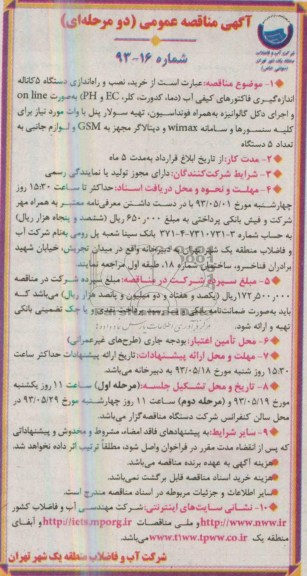 آگهی مناقصه عمومی (دو مرحله‌ای)
شماره ۱۶-۹۳
شرکت آب و فاضلاب
منطقه یک شهر تهران
(سهامی خاص)
۱- موضوع مناقصه: عبارت است از خرید، نصب و راه‌اندازی دستگاه ۵ کاناله
اندازه‌گیری فاکتورهای کیفی آب (دما، کدورت، کلر، EC و PH) به‌صورت on line
و اجرای دکل گالوانیزه به‌همراه فونداسیون، تهیه سولار پنل با وات مورد نیاز برای
کلیه سنسورها و سامانه wimax و دیتالاگر مجهز به GSM و لوازم جانبی به
تعداد ۵ دستگاه
۲- مدت کار: از تاریخ ابلاغ قرارداد به‌مدت ۵ ماه
۳- شرایط شرکت‌کنندگان: دارای مجوز تولید یا نمایندگی رسمی
۴- مهلت و نحوه و محل دریافت اسناد: حداکثر تا ساعت ۱۵:۳۰ روز
چهارشنبه مورخ ۹۳/۰۵/۰۱ با در دست داشتن معرفی‌نامه معتبر به همراه مهر
شرکت و فیش بانکی پرداختی به مبلغ ۶۵۰,۰۰۰ ریال (ششصد و پنجاه هزار ریال)
به حساب شماره ۳-۷۳۱۰۷۳۱-۴-۳۷۱ بانک سینا شعبه پل رومی به‌نام شرکت آب
و فاضلاب منطقه یک شهر تهران به دبیرخانه واقع در میدان تجریش، خیابان شهید
برادران فناخسرو، ساختمان شماره ۱۸، طبقه اول مراجعه نمایند.
۵- مبلغ سپرده شرکت در مناقصه: مبلغ سپرده شرکت در مناقصه
۱۷۲,۵۰۰,۰۰۰ ریال (یکصد و هفتاد و دو میلیون و پانصد هزار ریال) می‌باشد که
باید به‌صورت ضمانت‌نامه بانکی و یا رسید پرداخت نقدی و یا چک تضمینی بانکی
تهیه و ارائه شود.
۶- محل تأمین اعتبار: بودجه جاری (طرح‌های غیرعمرانی)
۷- مهلت و محل ارائه پیشنهادات: تاریخ ارائه پیشنهادات حداکثر ساعت
۱۵:۳۰ روز شنبه مورخ ۹۳/۰۵/۱۸ به دبیرخانه می‌باشد.
۸- تاریخ و محل تشکیل جلسه: (مرحله اول) ساعت ۱۱ روز یکشنبه
مورخ ۹۳/۰۵/۱۹ و (مرحله دوم) ساعت ۱۱ روز چهارشنبه مورخ ۹۳/۰۵/۲۹ در
محل سالن کنفرانس شرکت دستگاه مناقصه‌گزار می‌باشد.
۹- سایر شرایط: به پیشنهادهای فاقد امضاء، مشروط و مخدوش و پیشنهاداتی
که پس از انقضاء مدت مقرر در فراخوان واصل شود، مطلقاً ترتیب اثر داده نخواهد شد.
هزینه آگهی به عهده برنده مناقصه می‌باشد.
هزینه خرید اسناد مناقصه قابل برگشت نمی‌باشد.
سایر اطلاعات و جزئیات مربوطه در اسناد مناقصه مندرج است.
۱۰- نشانی سایت‌های اینترنتی: شرکت مهندسی آب و فاضلاب کشور
http://www.nww.ir و ملی مناقصات http://iets.mporg.ir و آبفای
منطقه یک http://www.t1ww.tpww.co.ir می‌باشد.
شرکت آب و فاضلاب منطقه یک شهر تهران